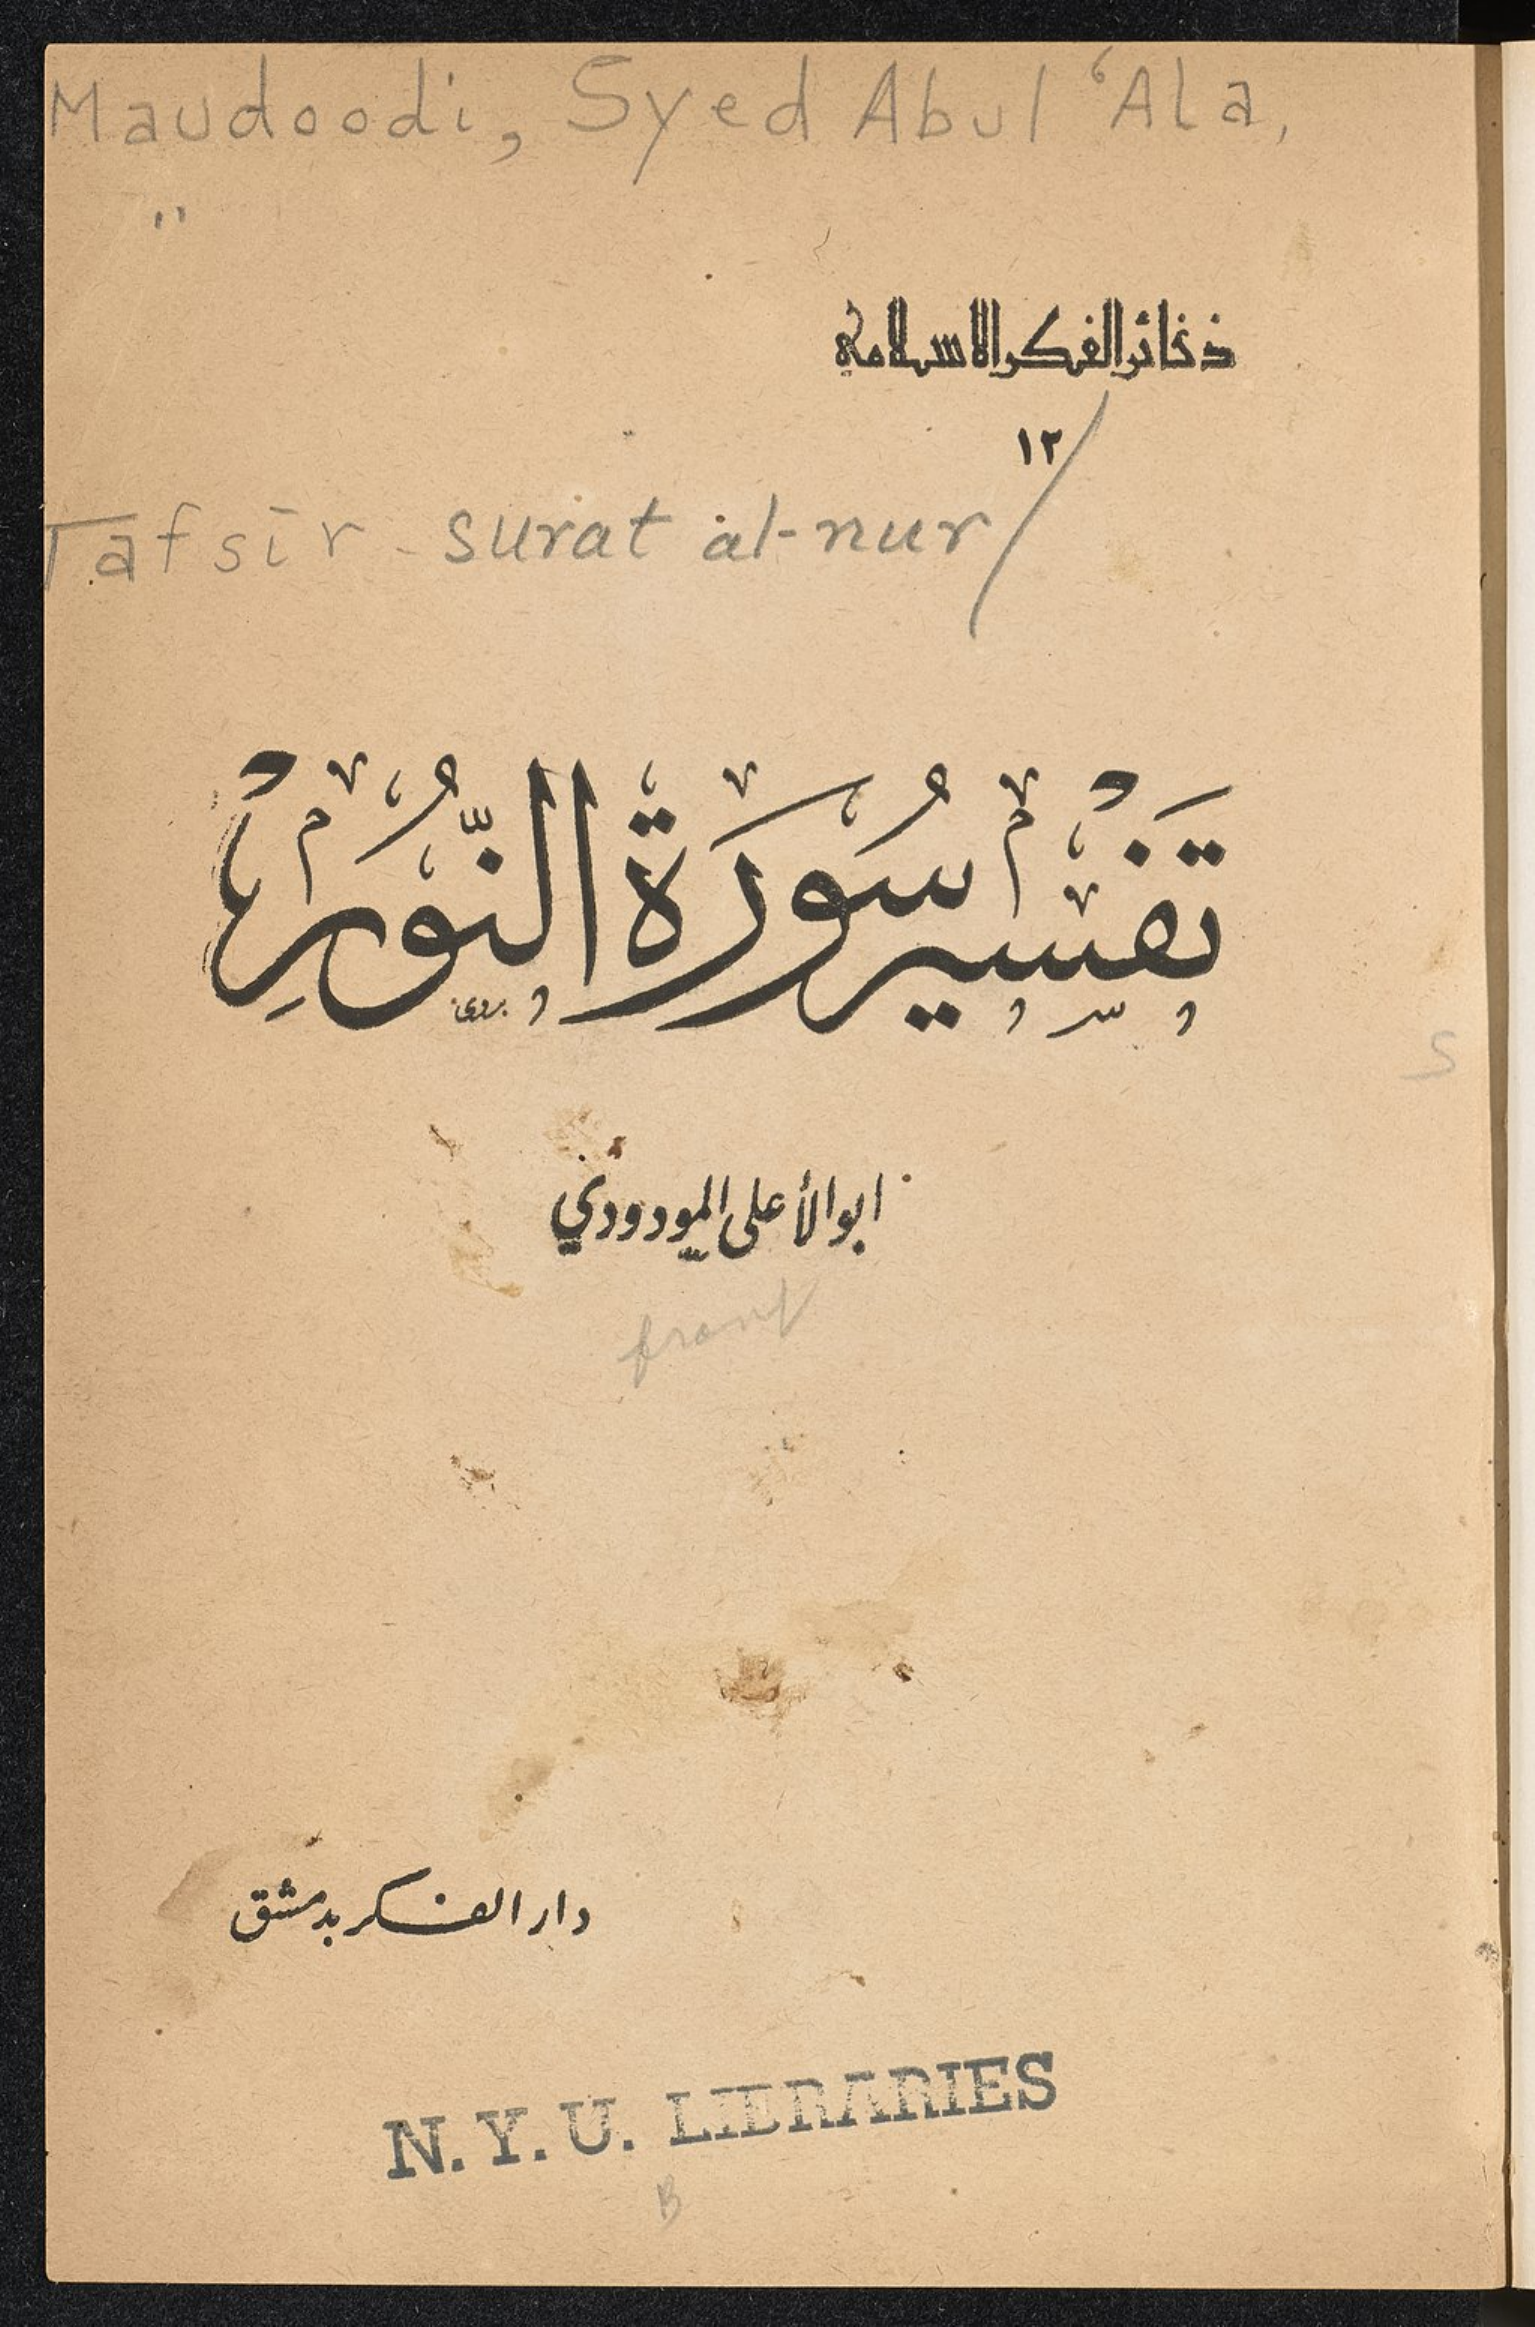 Maudoodi, Syed Abul ‘Ala,
"
ذخائر الفكر الاسلامي
١٢
Tafsīr surat al-nur/
تَفْسِير سُورَة النُّورِ
ابو الأعلى المودودي
دار الفكر بدمشق
N. Y. U. LIBRARIES
B